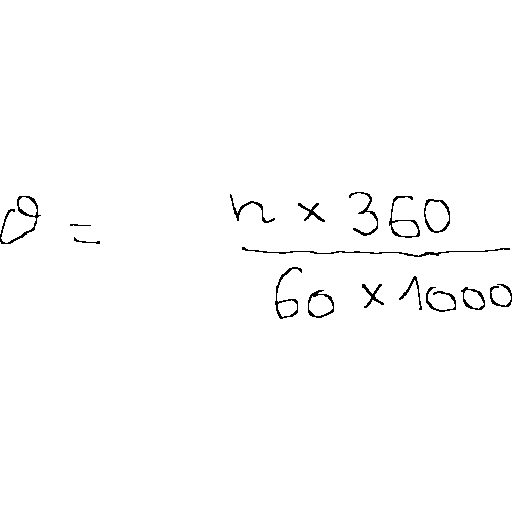 ϑ = n × 360 / 60 × 1000